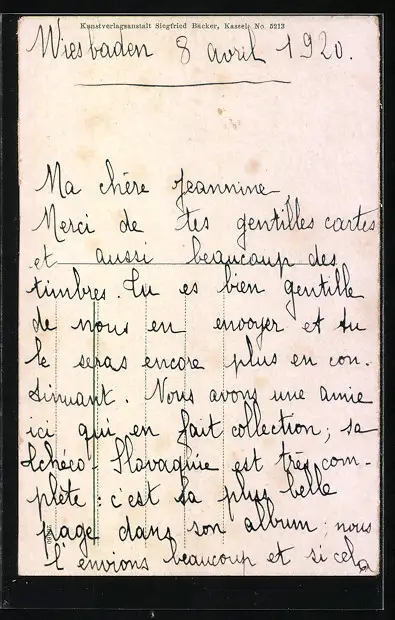 Kunstverlagsanstalt Siegfried Bäcker, Kassel. No. 5213
Wiesbaden 8 avril 1920.
Ma chère Jeannine
Merci de tes gentilles cartes
et aussi beaucoup des
timbres. Tu es bien gentille
de nous en envoyer et tu
le seras encore plus en con-
tinuant. Nous avons une amie
ici qui en fait collection; sa
Tchéco-Slovaquie est très com-
plète: c'est sa plus belle
page dans son album; nous
l'envions beaucoup et si cela